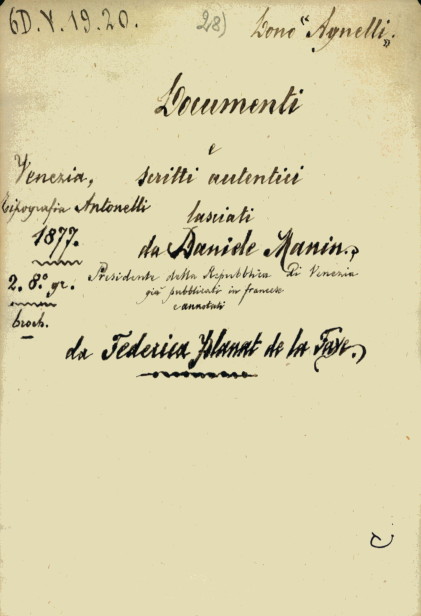 6D.V.19.20.
28)
Dono "Agnelli".
Documenti
e
Venezia,
scritti autentici
Tipografia Antonelli
lasciati
1877.
da Daniele Manin
2. 8.° gr.
Presidente della Repubblica di Venezia
già pubblicati in francese
e annotati
broch.
da Federica Planat de la Faye.